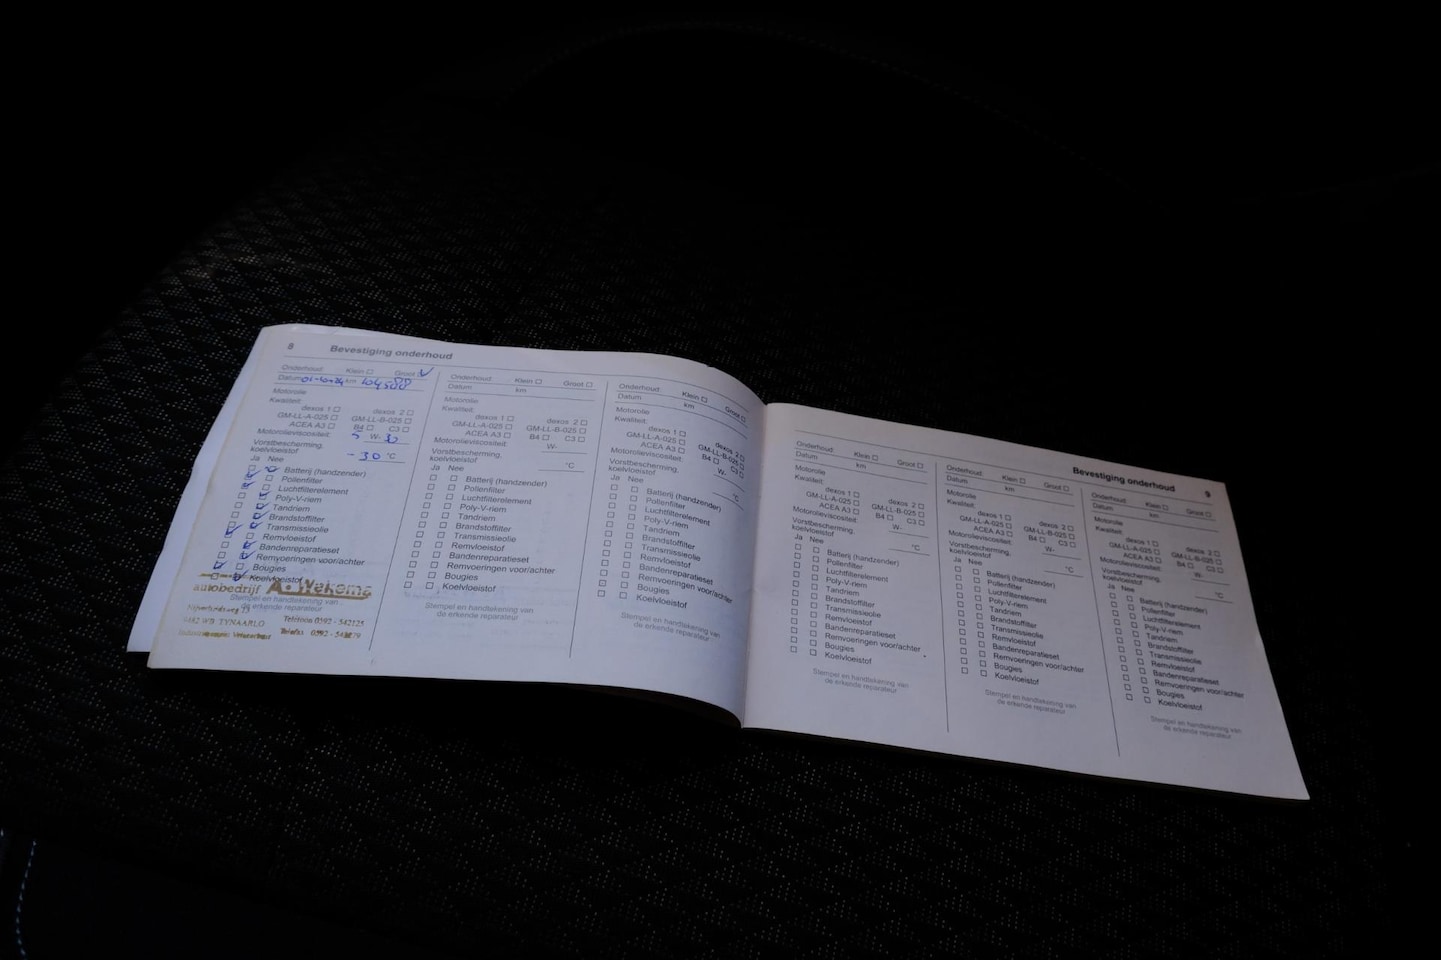 8 Bevestiging onderhoud
Onderhoud: Klein Groot
Datum 01-10-24 km 104588
Motorolie
Kwaliteit:
dexos 1 dexos 2
GM-LL-A-025 GM-LL-B-025
ACEA A3 B4 C3
Motorolieviscositeit: 5 W- 30
Vorstbescherming,
koelvloeistof -30 °C
Ja Nee
Batterij (handzender)
Pollenfilter
Luchtfilterelement
Poly-V-riem
Tandriem
Brandstoffilter
Transmissieolie
Remvloeistof
Bandenreparatieset
Remvoeringen voor/achter
Bougies
Koelvloeistof
autobedrijf Wekema
Stempel en handtekening van
de erkende reparateur
9482 WB TYNAARLO
Telefoon 0592 - 542125
Telefax 0592 -
Onderhoud: Klein Groot
Datum km
Motorolie
Kwaliteit:
dexos 1 dexos 2
GM-LL-A-025 GM-LL-B-025
ACEA A3 B4 C3
Motorolieviscositeit: W-
Vorstbescherming,
koelvloeistof °C
Ja Nee
Batterij (handzender)
Pollenfilter
Luchtfilterelement
Poly-V-riem
Tandriem
Brandstoffilter
Transmissieolie
Remvloeistof
Bandenreparatieset
Remvoeringen voor/achter
Bougies
Koelvloeistof
Stempel en handtekening van
de erkende reparateur
Onderhoud: Klein Groot
Datum km
Motorolie
Kwaliteit:
dexos 1 dexos 2
GM-LL-A-025 GM-LL-B-025
ACEA A3 B4 C3
Motorolieviscositeit: W-
Vorstbescherming,
koelvloeistof °C
Ja Nee
Batterij (handzender)
Pollenfilter
Luchtfilterelement
Poly-V-riem
Tandriem
Brandstoffilter
Transmissieolie
Remvloeistof
Bandenreparatieset
Remvoeringen voor/achter
Bougies
Koelvloeistof
Stempel en handtekening van
de erkende reparateur
Bevestiging onderhoud 9
Onderhoud: Klein Groot
Datum km
Motorolie
Kwaliteit:
dexos 1 dexos 2
GM-LL-A-025 GM-LL-B-025
ACEA A3 B4 C3
Motorolieviscositeit: W-
Vorstbescherming,
koelvloeistof °C
Ja Nee
Batterij (handzender)
Pollenfilter
Luchtfilterelement
Poly-V-riem
Tandriem
Brandstoffilter
Transmissieolie
Remvloeistof
Bandenreparatieset
Remvoeringen voor/achter
Bougies
Koelvloeistof
Stempel en handtekening van
de erkende reparateur
Onderhoud: Klein Groot
Datum km
Motorolie
Kwaliteit:
dexos 1 dexos 2
GM-LL-A-025 GM-LL-B-025
ACEA A3 B4 C3
Motorolieviscositeit: W-
Vorstbescherming,
koelvloeistof °C
Ja Nee
Batterij (handzender)
Pollenfilter
Luchtfilterelement
Poly-V-riem
Tandriem
Brandstoffilter
Transmissieolie
Remvloeistof
Bandenreparatieset
Remvoeringen voor/achter
Bougies
Koelvloeistof
Stempel en handtekening van
de erkende reparateur
Onderhoud: Klein Groot
Datum km
Motorolie
Kwaliteit:
dexos 1 dexos 2
GM-LL-A-025 GM-LL-B-025
ACEA A3 B4 C3
Motorolieviscositeit: W-
Vorstbescherming,
koelvloeistof °C
Ja Nee
Batterij (handzender)
Pollenfilter
Luchtfilterelement
Poly-V-riem
Tandriem
Brandstoffilter
Transmissieolie
Remvloeistof
Bandenreparatieset
Remvoeringen voor/achter
Bougies
Koelvloeistof
Stempel en handtekening van
de erkende reparateur